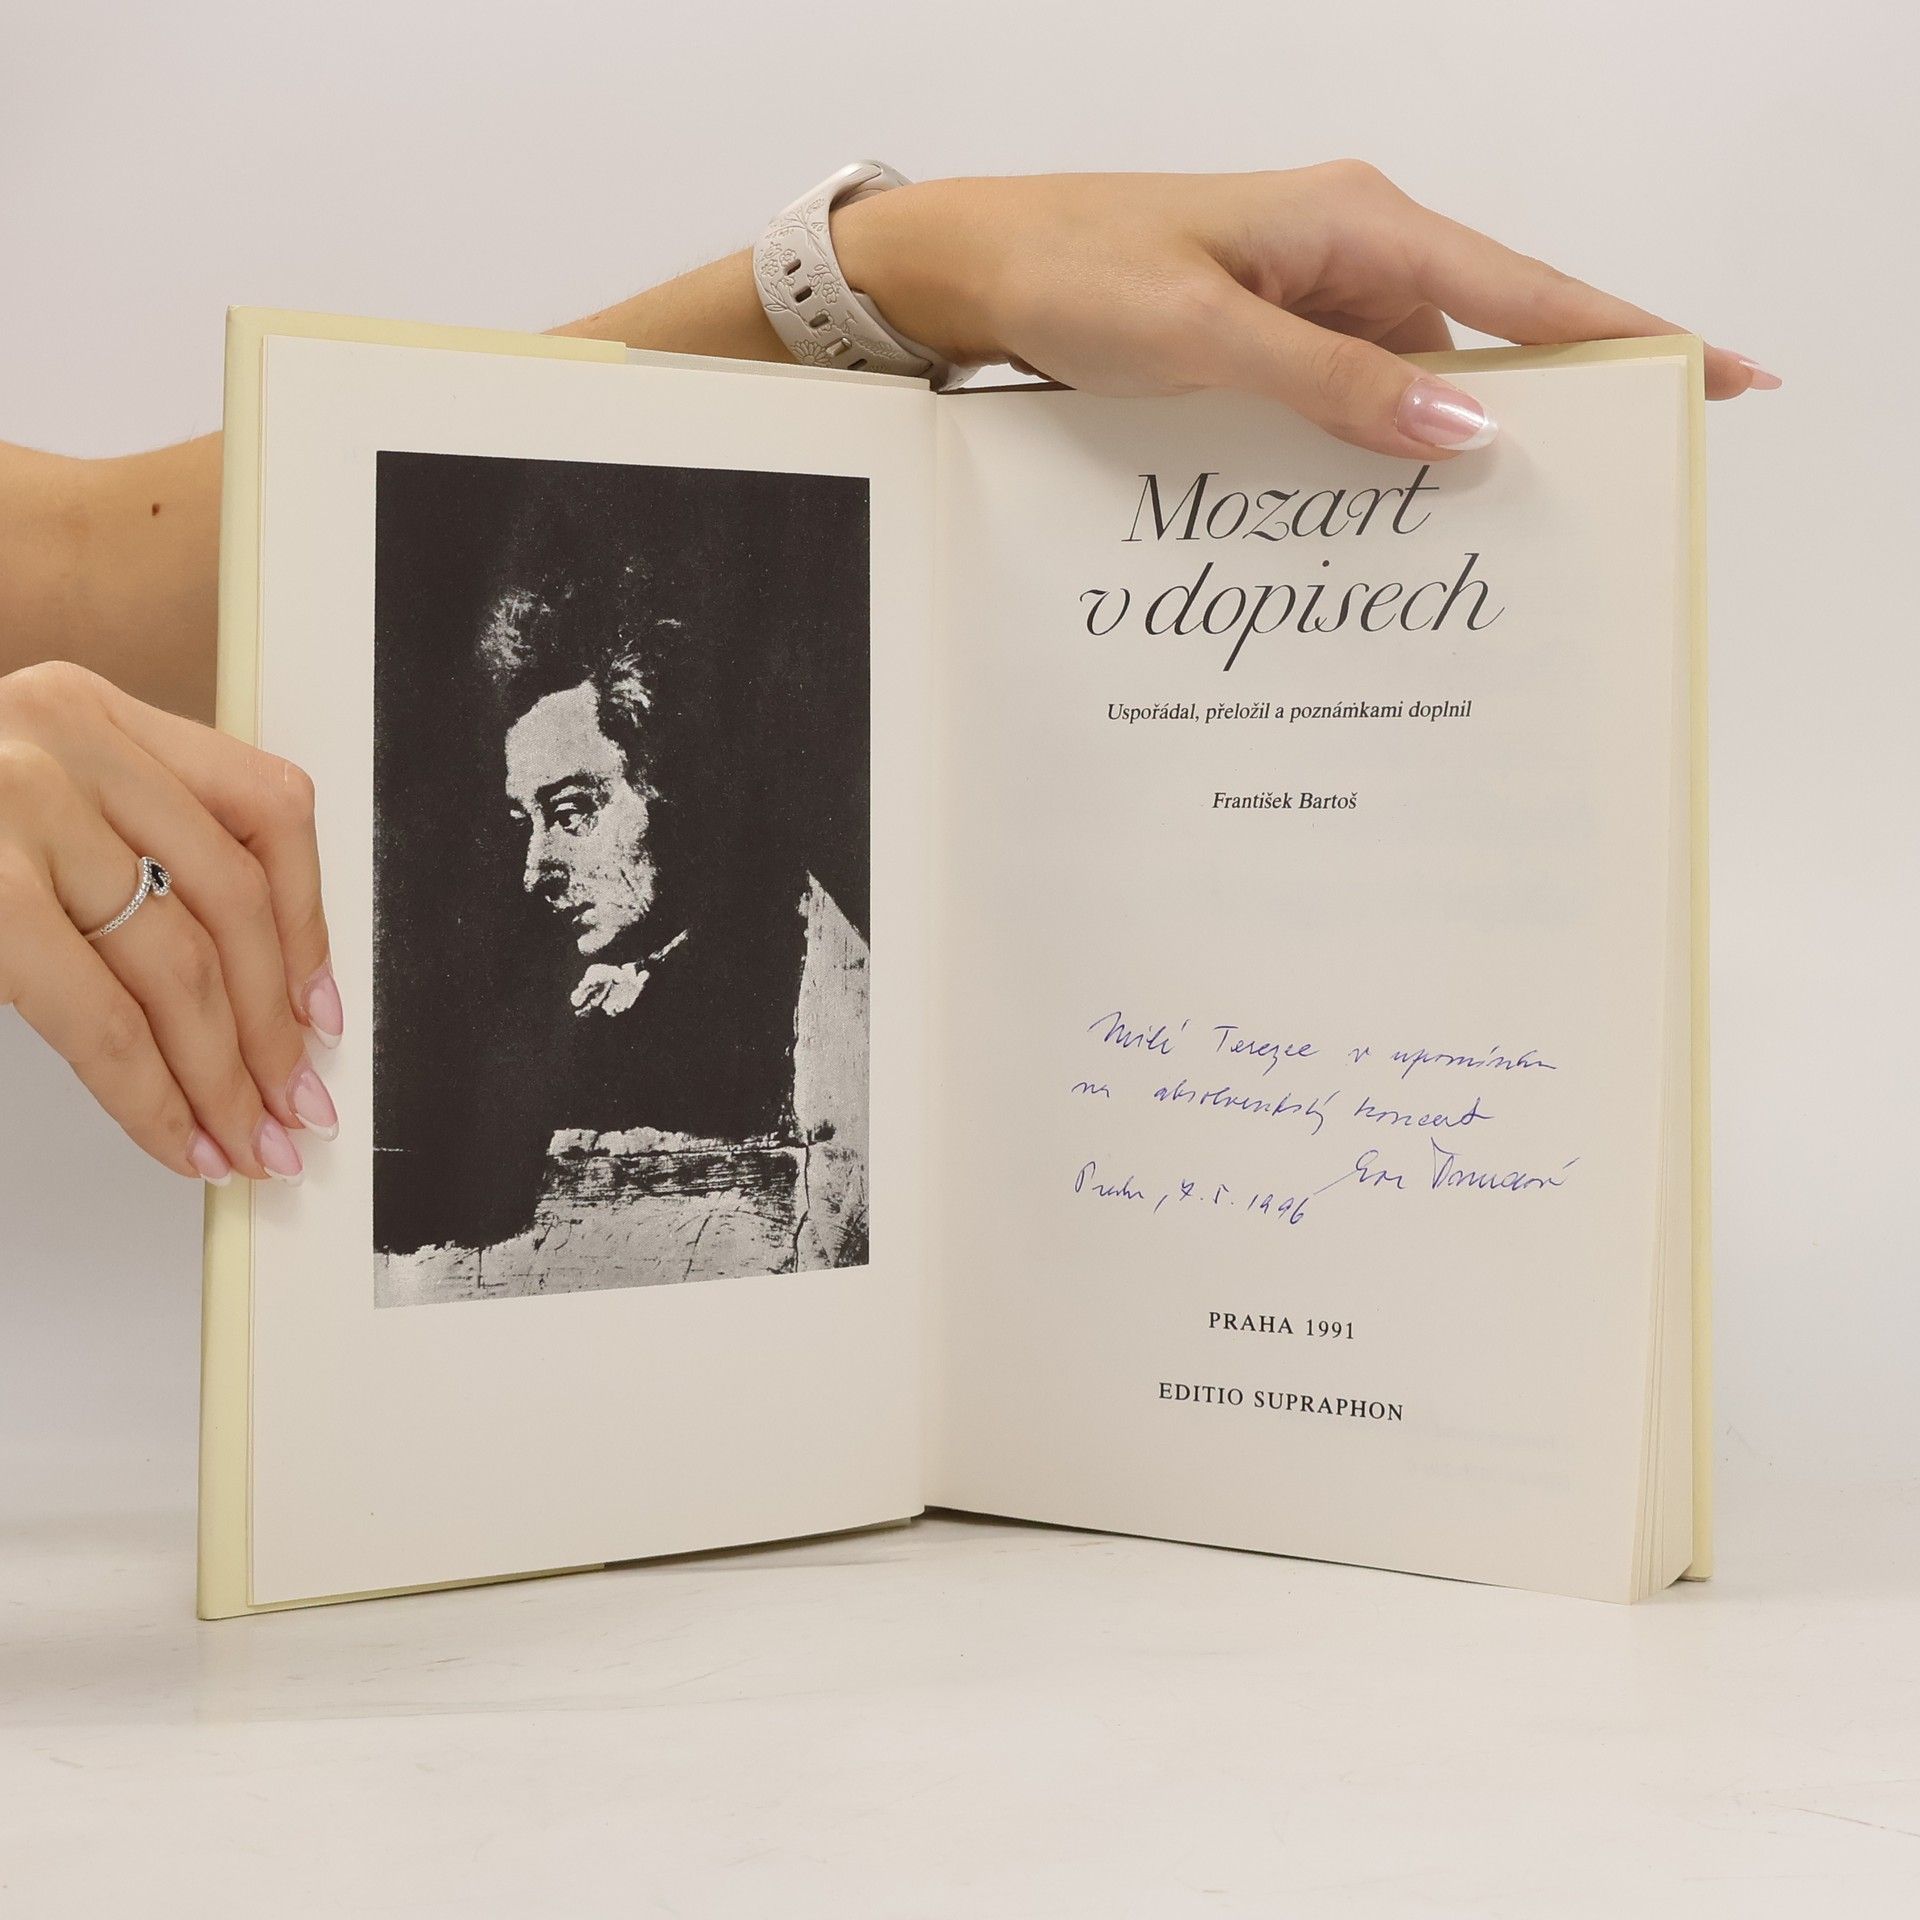 Mozart
v dopisech
Uspořádal, přeložil a poznámkami doplnil
František Bartoš
Milé Terezce v upomínku
na absolventský koncert
Eva
Praha, 7. 5. 1996
PRAHA 1991
EDITIO SUPRAPHON